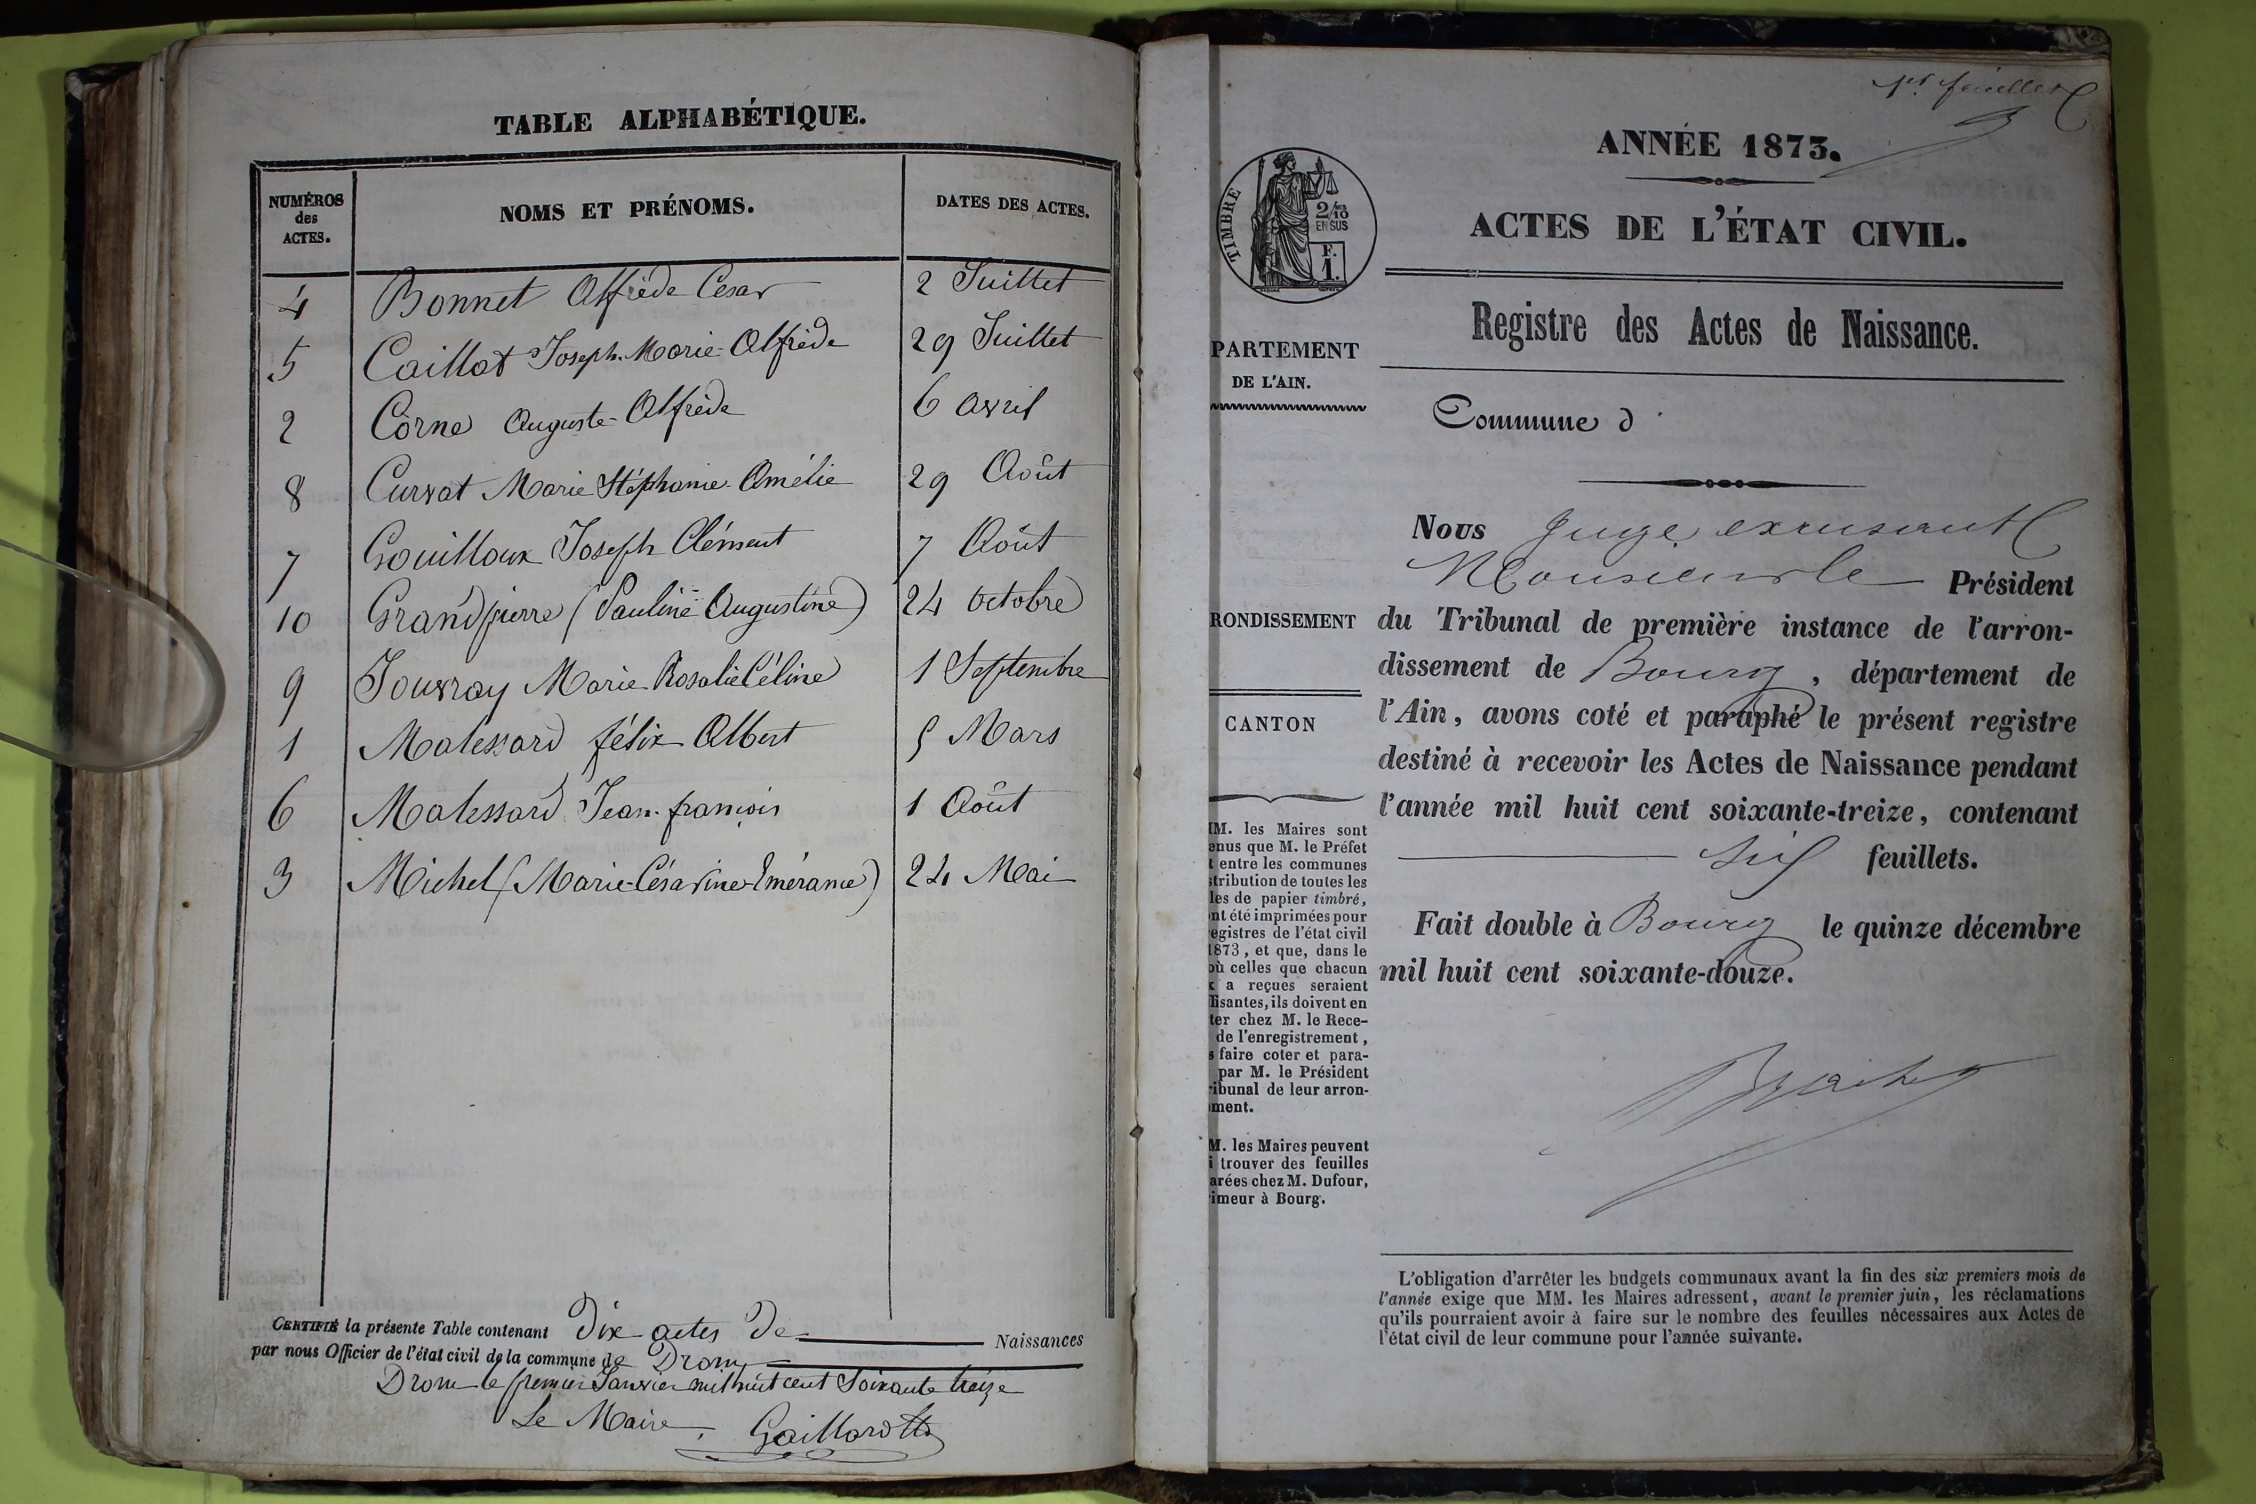 TABLE ALPHABÉTIQUE.
NUMÉROS des ACTES. NOMS ET PRÉNOMS. DATES DES ACTES.
4 Bonnet Alfrède César 2 Juillet
5 Caillat Joseph-Marie-Alfrède 29 Juillet
2 Corne Auguste-Alfrède 6 avril
8 Curvat Marie Stéphanie-Amélie 29 Août
7 Gouilloux Joseph Clément 7 Août
10 Grandpierre (Pauline-Augustine) 24 octobre
9 Jouvray Marie Rosalie Céline 1 Septembre
1 Malessard félix Albert 5 Mars
6 Malessard Jean-françois 1 Août
3 Michel (Marie-Césarine-Emérance) 24 Mai
CERTIFIÉ la présente Table contenant Dix actes de Naissances
par nous Officier de l'état civil de la commune de Drom
Drom le premier Janvier mil huit cent Soixante treize
Le Maire,
1er feuillet
ANNÉE 1873.
ACTES DE L'ÉTAT CIVIL.
TIMBRE
2/10
EN SUS
F.
1.
Registre des Actes de Naissance.
PARTEMENT
DE L'AIN.
Commune d
RONDISSEMENT
CANTON
Nous Juge, excusant
Monsieur le Président
du Tribunal de première instance de l'arron-
dissement de Bourg, département de
l'Ain, avons coté et paraphé le présent registre
destiné à recevoir les Actes de Naissance pendant
l'année mil huit cent soixante-treize, contenant
six feuillets.
Fait double à Bourg le quinze décembre
mil huit cent soixante-douze.
M. les Maires sont
enus que M. le Préfet
t entre les communes
stribution de toutes les
les de papier timbré,
nt été imprimées pour
egistres de l'état civil
1873, et que, dans le
où celles que chacun
x a reçues seraient
fisantes, ils doivent en
ter chez M. le Rece-
de l'enregistrement,
s faire coter et para-
par M. le Président
ribunal de leur arron-
ment.
M. les Maires peuvent
i trouver des feuilles
arées chez M. Dufour,
imeur à Bourg.
L'obligation d'arrêter les budgets communaux avant la fin des six premiers mois de
l'année exige que MM. les Maires adressent, avant le premier juin, les réclamations
qu'ils pourraient avoir à faire sur le nombre des feuilles nécessaires aux Actes de
l'état civil de leur commune pour l'année suivante.